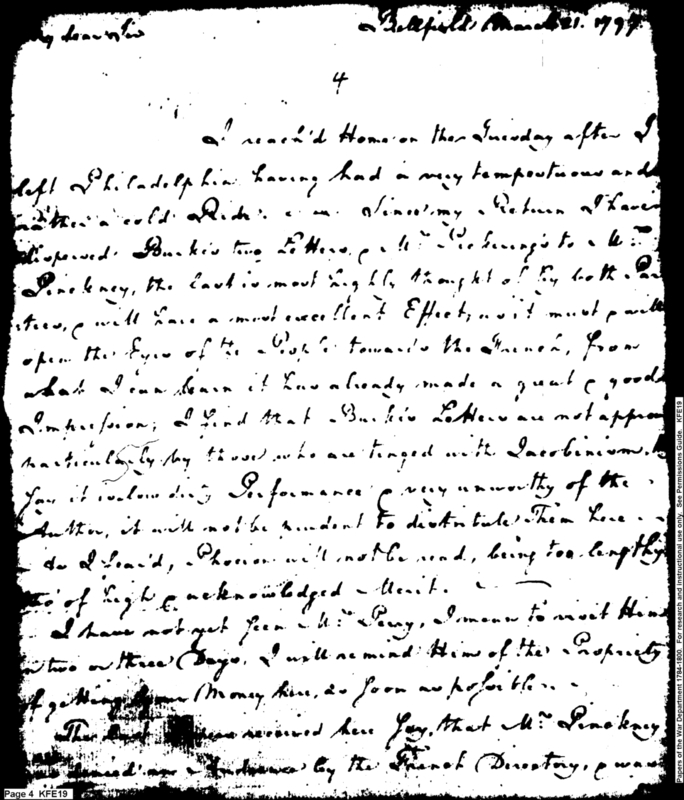 My dear Sir Bellfield March 21. 1797.
4
I reach'd Home on the Tuesday after I
left Philadelphia having had a very tempestuous and
rather a cold Ride. Since my Return I have
dispersed Burke's two Letters, & Mr. Pickering's to Mr.
Pinckney, the last is most highly thought of by both Par
ties, & will have a most excellent Effect, as it must & will
open the Eyes of the People towards the French, from
what I can learn it has already made a great & good
Impression; I find that Burke's Letters are not approv
particularly by those who are tinged with Jacobinism,
say it is a low dirty Performance & very unworthy of the
Author, it will not be prudent to distribute Them here
As I fear'd, Phocion will not be read, being too lengthy
tho' of high & acknowledged Merit.
I have not yet seen Mr. Perry, I mean to visit Him
in two or three Days, I will remind Him of the Propriety
of getting your Money here, as soon as possible
The last received here say, that Mr. Pinckney
was denied an Audience by the French Directory, & was
Page 4 KFE19
Papers of the War Department 1784-1800. For research and instructional use only. See Permissions Guide. KFE19